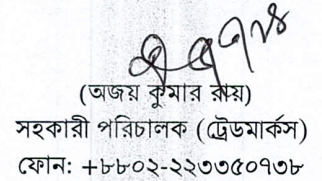 (অজয় কুমার রায়)
সহকারী পরিচালক (ট্রেডমার্কস)
ফোন: +৮৮০২-২২৩৩৫০৭৩৮